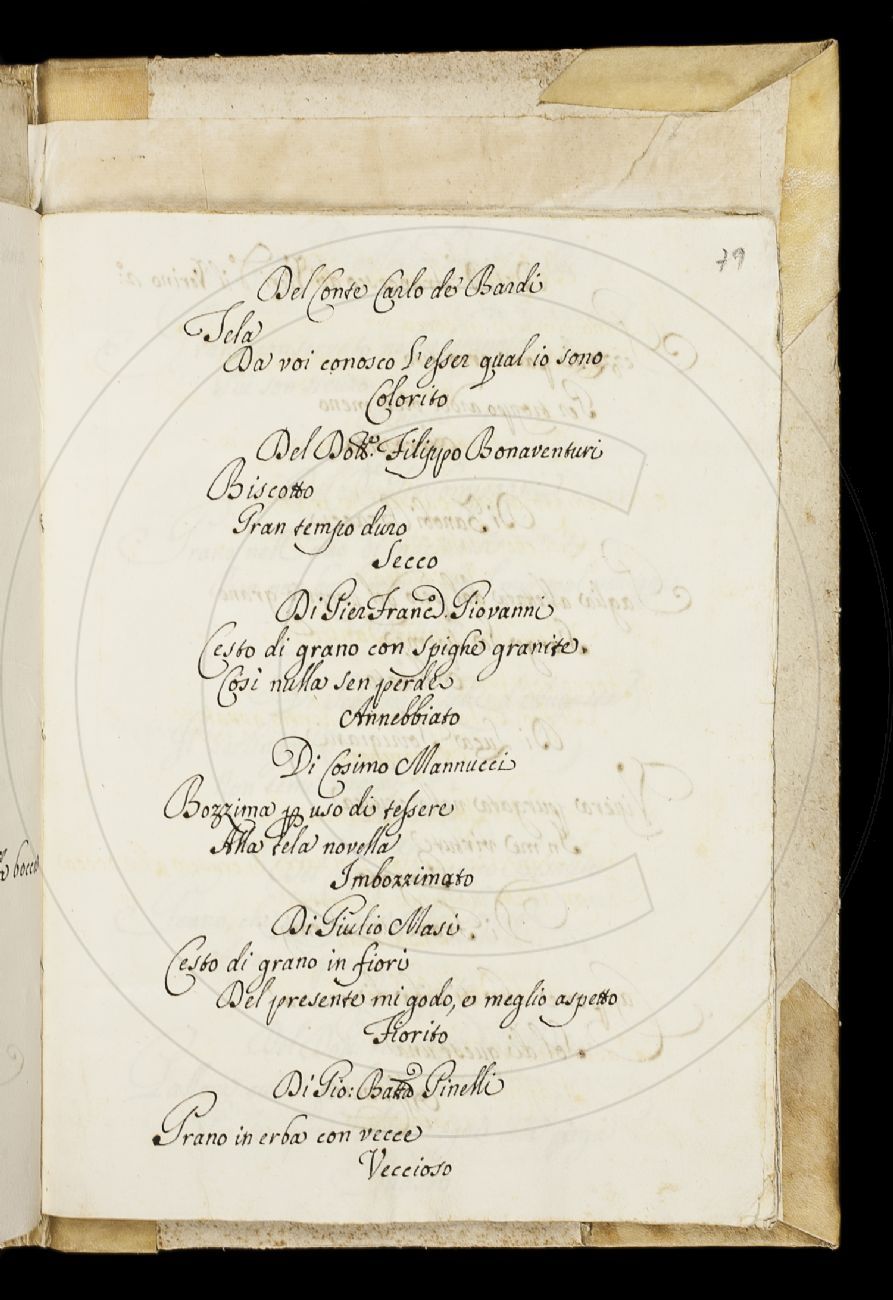 79
Del Conte Carlo de' Bardi
Tela
Da voi conosco l'esser qual io sono
Colorito
Del Dott.º Filippo Bonaventuri
Biscotto
Gran tempo duro
Secco
Di Pier Franc.º d. Giovanni
Cesto di grano con spighe granite.
Così nulla sen perde
Annebbiato
Di Cosimo Mannucci
Bozzima p uso di tessere
Alla tela novella
Imbozzimato
Di Giulio Masi.
Cesto di grano in fiori
Del presente mi godo, e meglio aspetto
Fiorito
Di Gio: Batt.ª Ginelli
Grano in erba con vecce
Veccioso